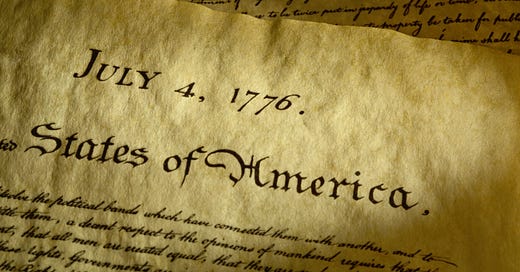 to be twice put in jeopardy of life or
property be taken for publ
crime shall
JULY 4, 1776.
ted States of America,
solve the political bands which have connected them with another, and to
them, a decent respect to the opinions of mankind requires that
that all men are created equal, that they are
these rights, Governments